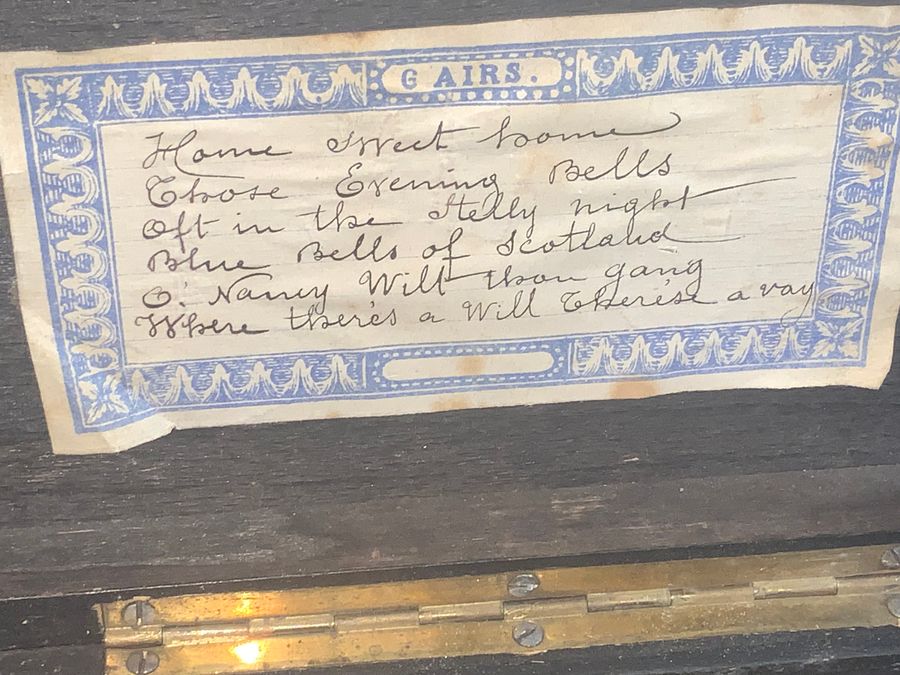 6 AIRS.
Home Sweet home
Those Evening Bells
Oft in the Stelly night
Blue Bells of Scotland
O! Nancy Wilt thou gang
Where there's a Will There'se a vay